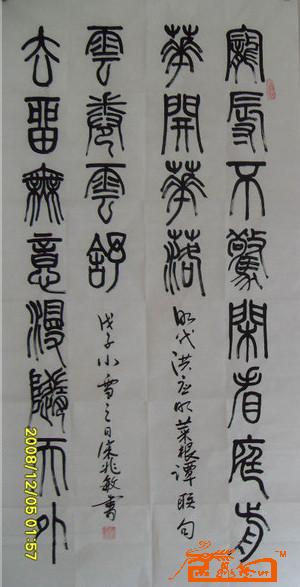 寵辱不驚閑看庭前
華開華落
明代洪应明菜根谭联句
去畱無意漫隨天外
雲卷雲舒
戊子小雪之日兆敏書
2008/12/05 01:57